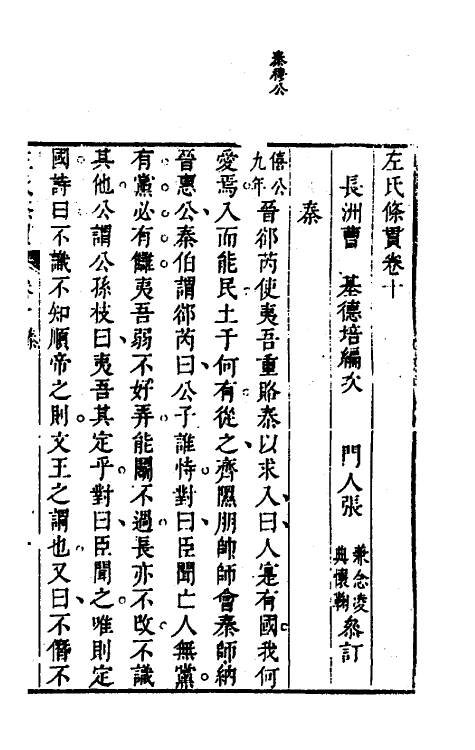 秦穆公
左氏條貫卷十
長洲曹 基德培編次 門人張 兼念凌 典懷鞠 叅訂
秦
僖公九年 晉郤芮使夷吾重賂秦以求入曰人寔有國我何
愛焉入而能民土于何有從之齊隰朋帥師會秦師納
晉惠公秦伯謂郤芮曰公子誰恃對曰臣聞亡人無黨
有黨必有讎夷吾弱不好弄能鬭不過長亦不改不識
其他公謂公孫枝曰夷吾其定乎對曰臣聞之唯則定
國詩曰不識不知順帝之則文王之謂也又曰不僭不